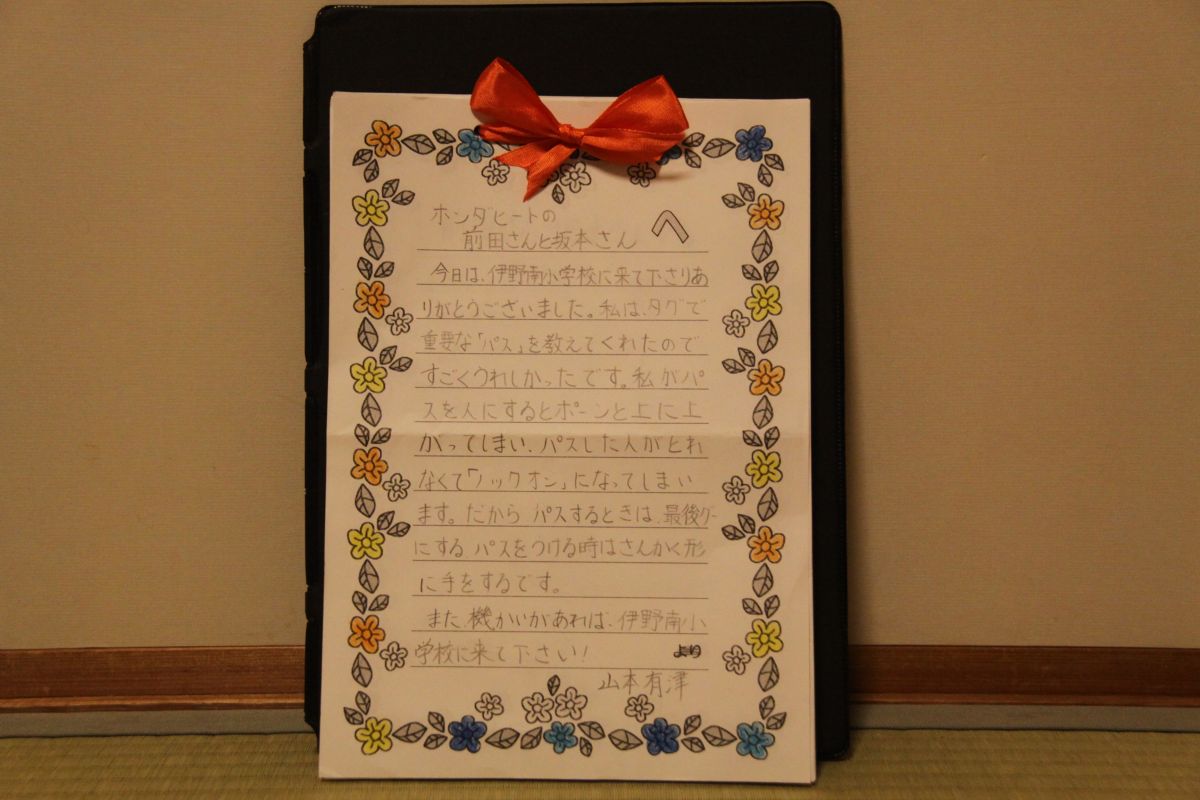 ホンダヒートの
前田さんと坂本さん へ
今日は、伊野南小学校に来て下さりあ
りがとうございました。私は、タグで
重要な「パス」を教えてくれたので
すごくうれしかったです。私がパ
スを人にするとポーンと上に上
がってしまい、パスした人がとれ
なくて「ノックオン」になってしまい
ます。だから パスするときは、最後グー
にする パスをつける時はさんかく形
に手をするです。
また、機かいがあれば、伊野南小
学校に来て下さい! より
山本有津